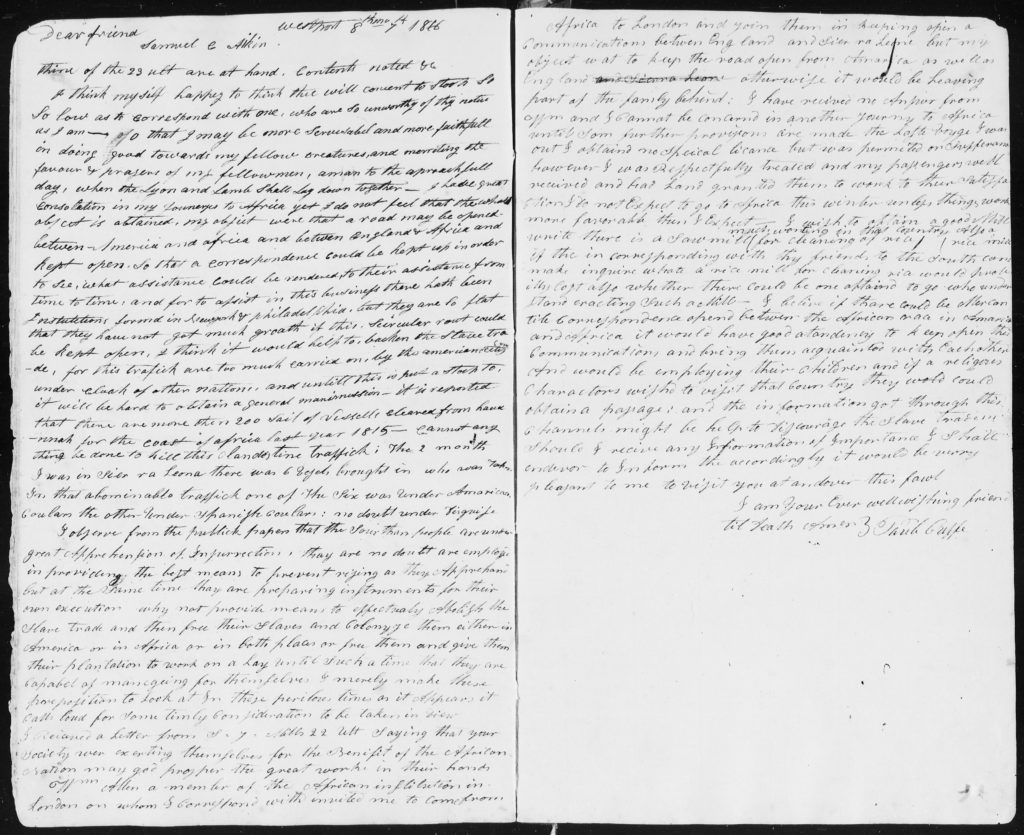 Dear friend
Westport 8th mo 7th 1816
Samuel C Aikin
thine of the 23 ult are at hand. Contents noted &c
I think myself happy to think thee will consent to stoop So
So low as to correspond with one, who are so unworthy of thy notice
as I am — So that I may be more Serviabel and more faithfull
in doing good towards my fellow creatures, and the
favour & prayers of my fellowmen, aman to the approachfull
day, when the Lyon and Lamb Shall Lay down together — I have great
Consolation in my Journeys to Africa yet I do not feel that the whole
object is obtained. my object were that a road may be opened
between America and africa and between England & Africa and
kept open. So that a correspondence could be kept up in order
to See, what assistance could be rendered to their assistance from
time to time, and for to assist in this business there hath been
Institutions formd in Newyork & philadelphia, but they are So flat
that they have not got much groath if this Sircular rout could
be kept open, I think it would help to, backen the Slave tra
-de, for this trafick are too much carried on, by the american
under cloak of other nations, and untill this is put a Stop to,
it will be hard to obtain a general manimission — it is reported
that there are more then 200 Sail of Vessells cleared from hava
-nnah for the coast of africa last year 1815 — Cannot any
thing be done to kill this Clandestine traffick; The 2 month
I was in Sier ra leona there was 6 brought in who was taken
In that abominable traffick one of the Six was under American
Coulars the other under Spanish Coulars: no doubt under Disguise
I observe from the publick papers that the Southan people are under
great Apprehension of Insurrection, thay are no doubt are employd
in providing, the best means to prevent rising as they Apprehand
but at the Same time thay are preparing instruments for their
own execution why not provide means to effectualy Abolish the
Slave trade and then free their Slaves and Colonyze them either in
America or in Africa or in both places or free them and give them
their plantation to work on a Lay until Such a time that they are
Capabel of manegung for themselves I merely make these
preposition to Look at In these perilous times as it Appears it
Calls loud for Some timly Consideration to be taken in view
I Received a Letter from S. J. Mills 22 ult Saying that your
Society wer exerting themselves for the Benifit of the African
Nation may god prosper the great work in their hands
Wm Allen a member of the African institution in
London on whom I Correspond with invited me to come from
Africa to London and join them in keeping open a
Communications between England and Sier ra Leone but my
object wat to keep the road open from America as well as
England and Sierra Leon otherwise it would be Leaving
part of the family behind; I have recived no Ansur from
Wm and I Cannot be Concernd in another Journy to Africa
until Som further provisons are made the Laste voige I was
out I obtaind no Speical licance but was permitted on Sufferance
however I was Respectfully treated and my pasengers well
received and had Land granted them to work to their Satisfac
-ction I do not Expect to go to Africa this winter unless things work
more favorabele then I Expect — I wish to obtain a good Mill
write there is a Sawmill much wonting in that Country Also a rice mill
for cleaning of rice,
if the in corresponding with thy friend, to the South con
make inquire whate a rice mill for Cleaning rice would prob
illy Cost also whether there could be one optaind to go who under
stand eracting Such a Mill — I belive if thare could be a Mercan
tile Correspondence opend between the African race in America
and Africa it would have good atandency to keep open the
Communications and bring them acquainted with Eachother
And would be employing their Children and if a religious
Charactors wished to visit that Country they wold could
obtain a pasage: and the information got through this
Channels might be help to Discourage the Slave
Should I receive any Information of Importance I Shall
endevor to Inform the accordingly it would be verry
pleasant to me to visit you at andover this fawl
I am Your Ever wellwishing friend
til Death Paul Cuffe